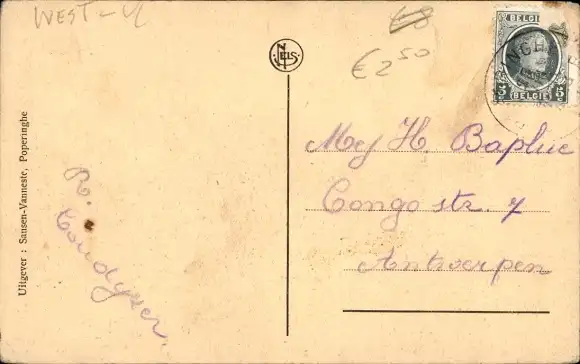 WEST-Vl
€8
€2 50
NELS
BELGIE
5 5
BELGIQUE
NGHE
Uitgever : Sansen-Vanneste, Poperinghe
R.
Coudyzer.
Mej H. Bapluc
Congo str. 7
Antwerpen